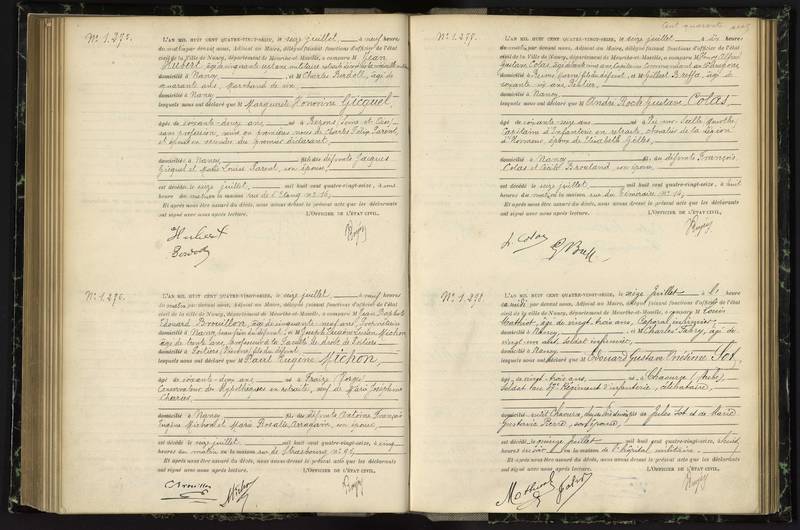 N° 1.275.
L'AN MIL HUIT CENT QUATRE-VINGT-SEIZE, le seize juillet, à neuf heures
du matin par devant nous, Adjoint au Maire, délégué faisant fonctions d'officier de l'état
civil de la Ville de Nancy, département de Meurthe-et-Moselle, a comparu M Jean
Hubert, âgé de cinquante ans, militaire retraité
domicilié à Nancy, et M Charles, âgé de
quarante ans, marchand de vin,
domicilié à Nancy
lesquels nous ont déclaré que Marguerite Honorine Gicquel,
âgée de soixante-deux ans, née à Bezons (Seine et Oise),
sans profession, veuve en premières noces de Charles Félix Parent,
et épouse en secondes du premier déclarant,
domiciliée à Nancy, fille des défunts Jacques
Gicquel et Marie Louise Parent, son épouse,
est décédée le seize juillet, mil huit cent quatre-vingt-seize, à
heures du matin en la maison rue de l'Étang n° 16,
Et après nous être assuré du décès, nous avons dressé le présent acte que les déclarants
ont signé avec nous après lecture. L'OFFICIER DE L'ÉTAT CIVIL,
Hubert
N° 1.276.
L'AN MIL HUIT CENT QUATRE-VINGT-SEIZE, le seize juillet, à neuf heures
du matin par devant nous, Adjoint au Maire, délégué faisant fonctions d'officier de l'état
civil de la Ville de Nancy, département de Meurthe-et-Moselle, a comparu M Jean Baptiste
Edouard Brouillon, âgé de cinquante-neuf ans, propriétaire
domicilié à Nancy, beau-père du défunt, et M Joseph Lucien Michon
âgé de trente ans, professeur à la Faculté de droit de Poitiers
domicilié à Poitiers (Vienne), fils du défunt,
lesquels nous ont déclaré que Paul Eugène Michon,
âgé de soixante-deux ans, né à Fraize (Vosges)
Conservateur des Hypothèques en retraite, veuf de Marie Joséphine
Charles,
domicilié à Nancy, fils des défunts Antoine François
Eugène Michon et Marie Rosalie, son épouse,
est décédé le seize juillet, mil huit cent quatre-vingt-seize, à cinq
heures du matin en la maison rue de Strasbourg n° 91
Et après nous être assuré du décès, nous avons dressé le présent acte que les déclarants
ont signé avec nous après lecture. L'OFFICIER DE L'ÉTAT CIVIL,
Brouillon Michon
Cent quarante
N° 1.277.
L'AN MIL HUIT CENT QUATRE-VINGT-SEIZE, le seize juillet, à dix heures
du matin par devant nous, Adjoint au Maire, délégué faisant fonctions d'officier de l'état
civil de la Ville de Nancy, département de Meurthe-et-Moselle, a comparu M Henry Alfred
Colas, âgé de
domicilié à Reims, du défunt, et M Gilbert, âgé de
soixante six ans, rentier,
domicilié à Nancy
lesquels nous ont déclaré que M André Roch Gustave Colas,
âgé de soixante-six ans, né à
Capitaine d'Infanterie en retraite, chevalier de la Légion
d'Honneur, époux de Elisabeth Gilles,
domicilié à Nancy, fils des défunts François
Colas et son épouse,
est décédé le seize juillet, mil huit cent quatre-vingt-seize, à huit
heures du matin en la maison rue du n° 14,
Et après nous être assuré du décès, nous avons dressé le présent acte que les déclarants
ont signé avec nous après lecture. L'OFFICIER DE L'ÉTAT CIVIL,
H. Colas
N° 1.278.
L'AN MIL HUIT CENT QUATRE-VINGT-SEIZE, le seize juillet, à heures
par devant nous, Adjoint au Maire, délégué faisant fonctions d'officier de l'état
civil de la Ville de Nancy, département de Meurthe-et-Moselle, a comparu M Louis
Mathiot, âgé de vingt trois ans, Caporal infirmier,
domicilié à Nancy, et M Charles Fabry, âgé de
vingt un ans, soldat infirmier,
domicilié à Nancy
lesquels nous ont déclaré que Edouard Gustave Sot,
âgé de vingt trois ans, né à Chaource (Aube),
Soldat au 37e Régiment d'infanterie, célibataire,
domicilié à Chaource, fils de Jules Sot et de Marie
Gustavie Pierre, son épouse,
est décédé le quinze juillet mil huit cent quatre-vingt-seize, à huit
heures du soir en la maison à l'hôpital militaire.
Et après nous être assuré du décès, nous avons dressé le présent acte que les déclarants
ont signé avec nous après lecture. L'OFFICIER DE L'ÉTAT CIVIL,
Mathiot Fabry